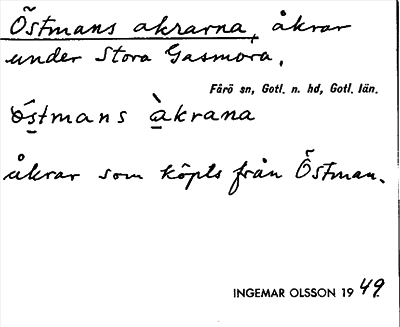 Östmans akrarna, åkrar
under Stora Gasmora.
Fårö sn, Gotl. n. hd, Gotl. län.
ǿs̲tmans à̲krana
åkrar som köpts från Östman.
INGEMAR OLSSON 19 49.